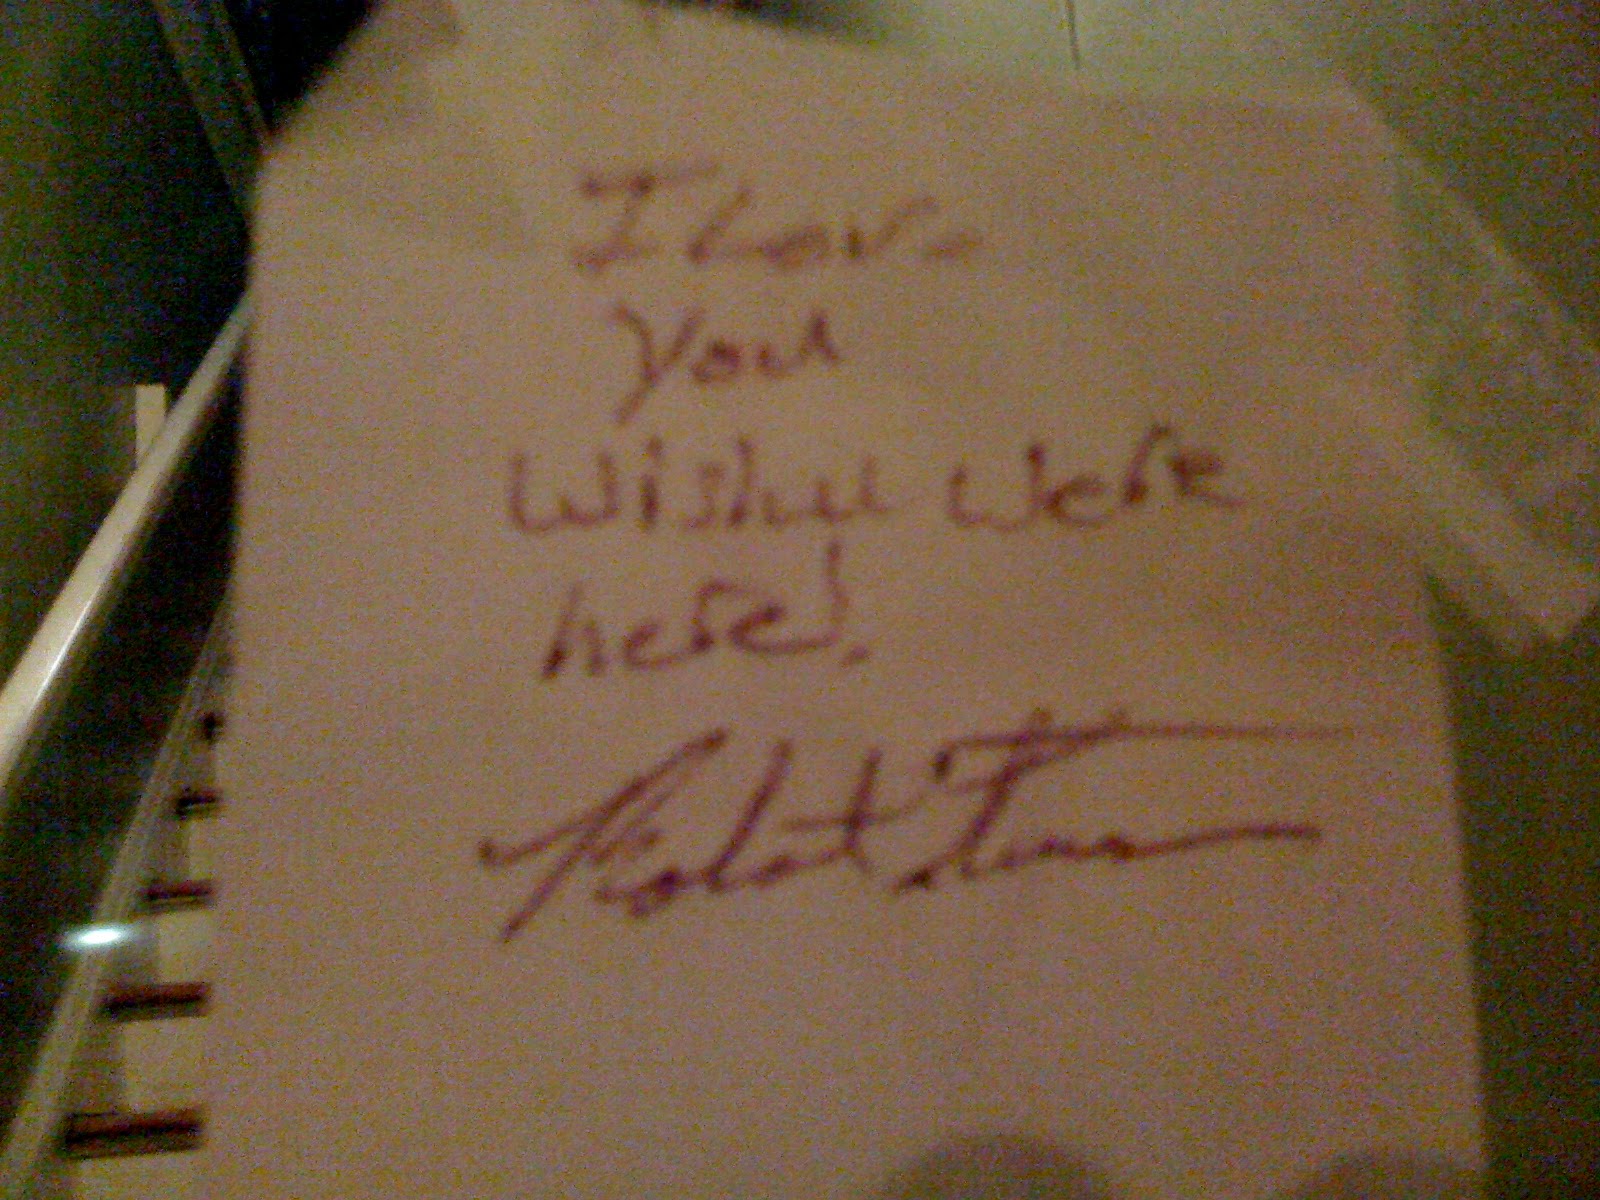 I Love
you
wish u were
here!